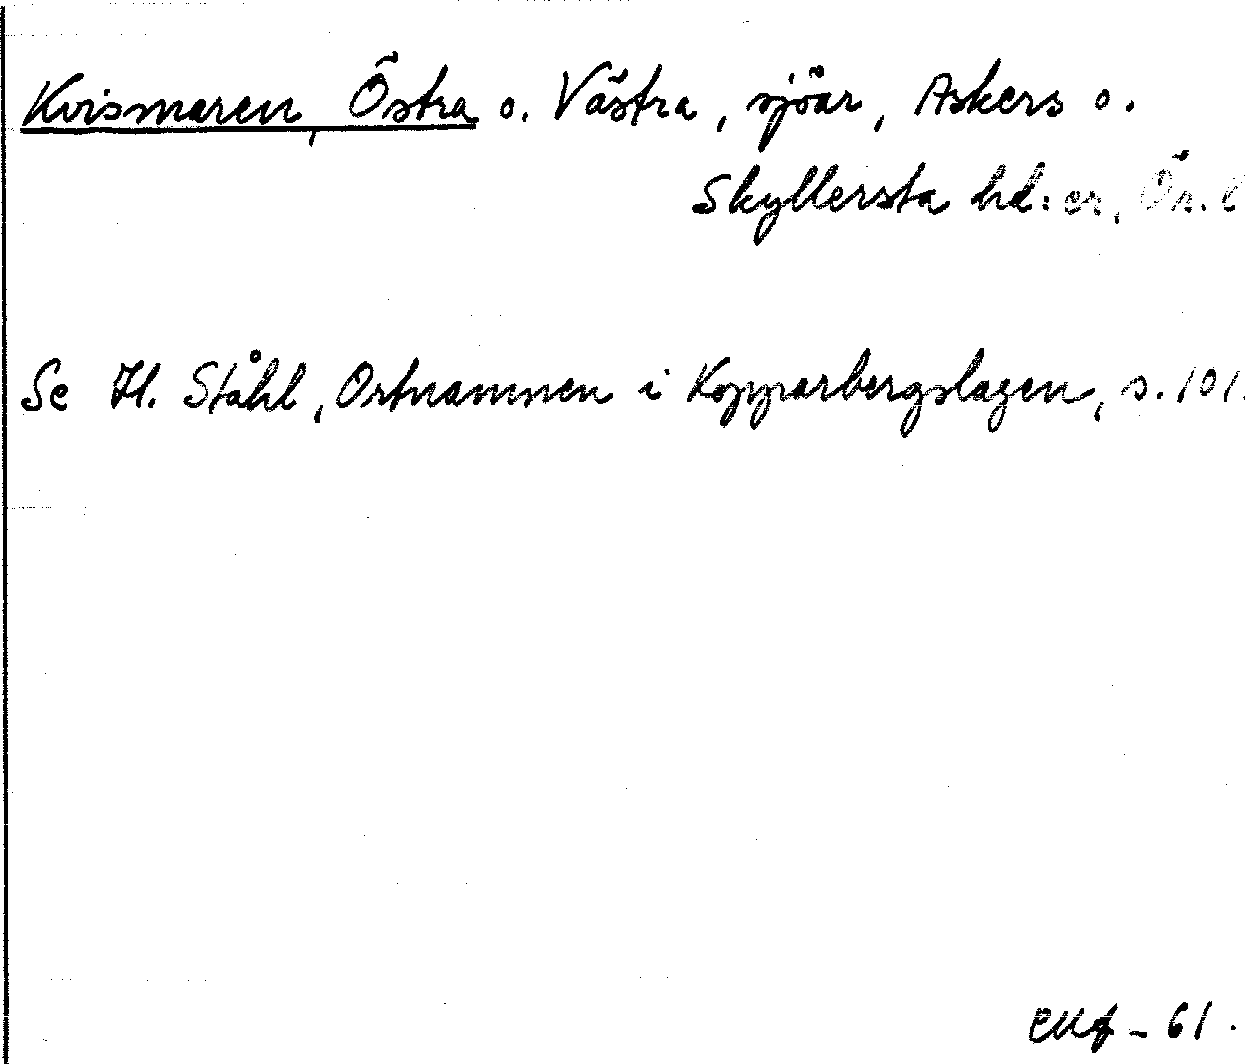 Kvismaren, Östra o. Västra, sjöar, Askers o.
Skyllersta hd:er, Ör. l
Se H. Ståhl, Ortnamnen i Kopparbergslagen, s. 101.
- 61.